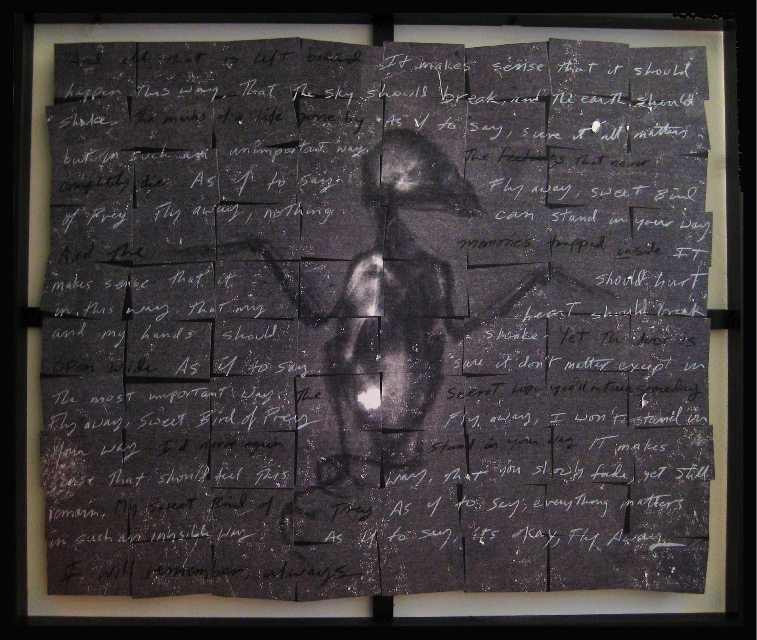 And all that is left behind It makes sense that it should
happen this way. That the sky should break and the earth should
shake. the marks of a life gone by As if to say, sure it all matters
but in such an unimportant way. The feelings that never
completely die. As if to say. Fly away, sweet Bird
of Prey Fly away, nothing can stand in your way
And the memories trapped inside IT
makes sense that it should hurt
in this way that my heart should break
and my hands should shake. Yet the door is
open wide As if to say sure it don't matter except in
The most important way. The secret hope you'll return someday
Fly away, Sweet Bird of Prey Fly away, I won't stand in
your way I'd never again stand in your way IT makes
sense that should feel this way, that you slowly fade, yet still
remain. My sweet Bird of Prey As if to say, everything matters
in such an invisible way. As if to say, it's okay, Fly Away
I will remember, always